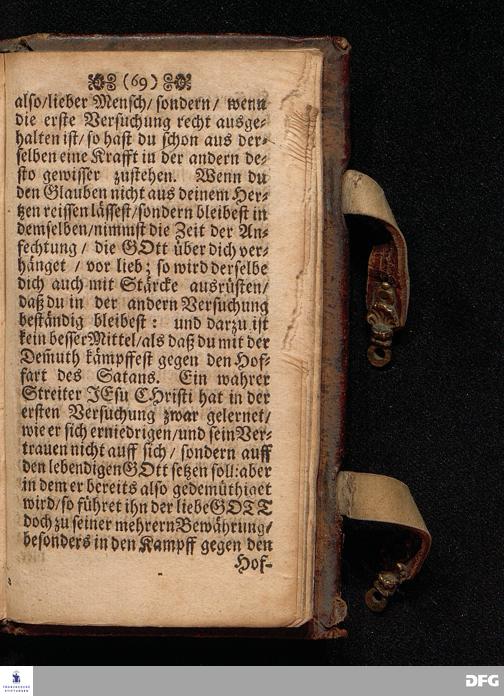 (69)
also/lieber Mensch/sondern/ wenn
die erste Versuchung recht ausge-
halten ist/so hast du schon aus der-
selben eine Krafft in der andern de-
sto gewisser zustehen. Wenn du
den Glauben nicht aus deinem Her-
tzen reissen lässest/sondern bleibest in
demselben/nimmst die Zeit der An-
fechtung / die GOtt über dich ver-
hänget / vor lieb; so wird derselbe
dich auch mit Stärcke ausrüsten/
daß du in der andern Versuchung
beständig bleibest: und darzu ist
kein besser Mittel/als daß du mit der
Demuth kämpffest gegen den Hof-
fart des Satans. Ein wahrer
Streiter JEsu CHristi hat in der
ersten Versuchung zwar gelernet/
wie er sich erniedrigen/und sein Ver-
trauen nicht auff sich/ sondern auff
den lebendigen GOtt setzen soll: aber
in dem er bereits also gedemüthiget
wird/so führet ihn der liebe GOTT
doch zu seiner mehrern Bewährung/
besonders in den Kampff gegen den
Hof-
FRANCKESCHE
STIFTUNGEN
DFG